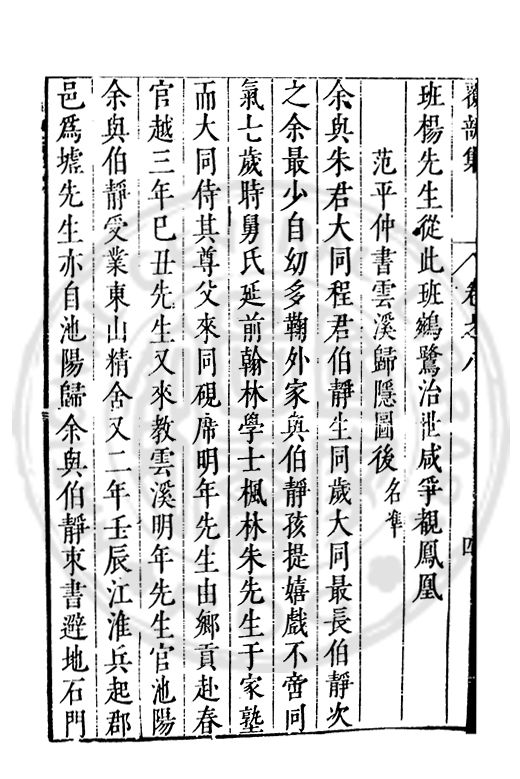 覆瓿集 卷之八 四
班楊先生從此班鵷鷺治世咸爭覩鳳凰
范平仲書雲溪歸隱圖後名準
余與朱君大同程君伯靜生同歲大同最長伯靜次
之余最少自幼多鞠外家與伯靜孩提嬉戲不啻同
氣七歲時舅氏延前翰林學士楓林朱先生于家塾
而大同侍其尊父來同硯席明年先生由鄉貢赴春
官越三年己丑先生又來教雲溪明年先生官池陽
余與伯靜受業東山精舍又二年壬辰江淮兵起郡
邑爲墟先生亦自池陽歸余與伯靜束書避地石門